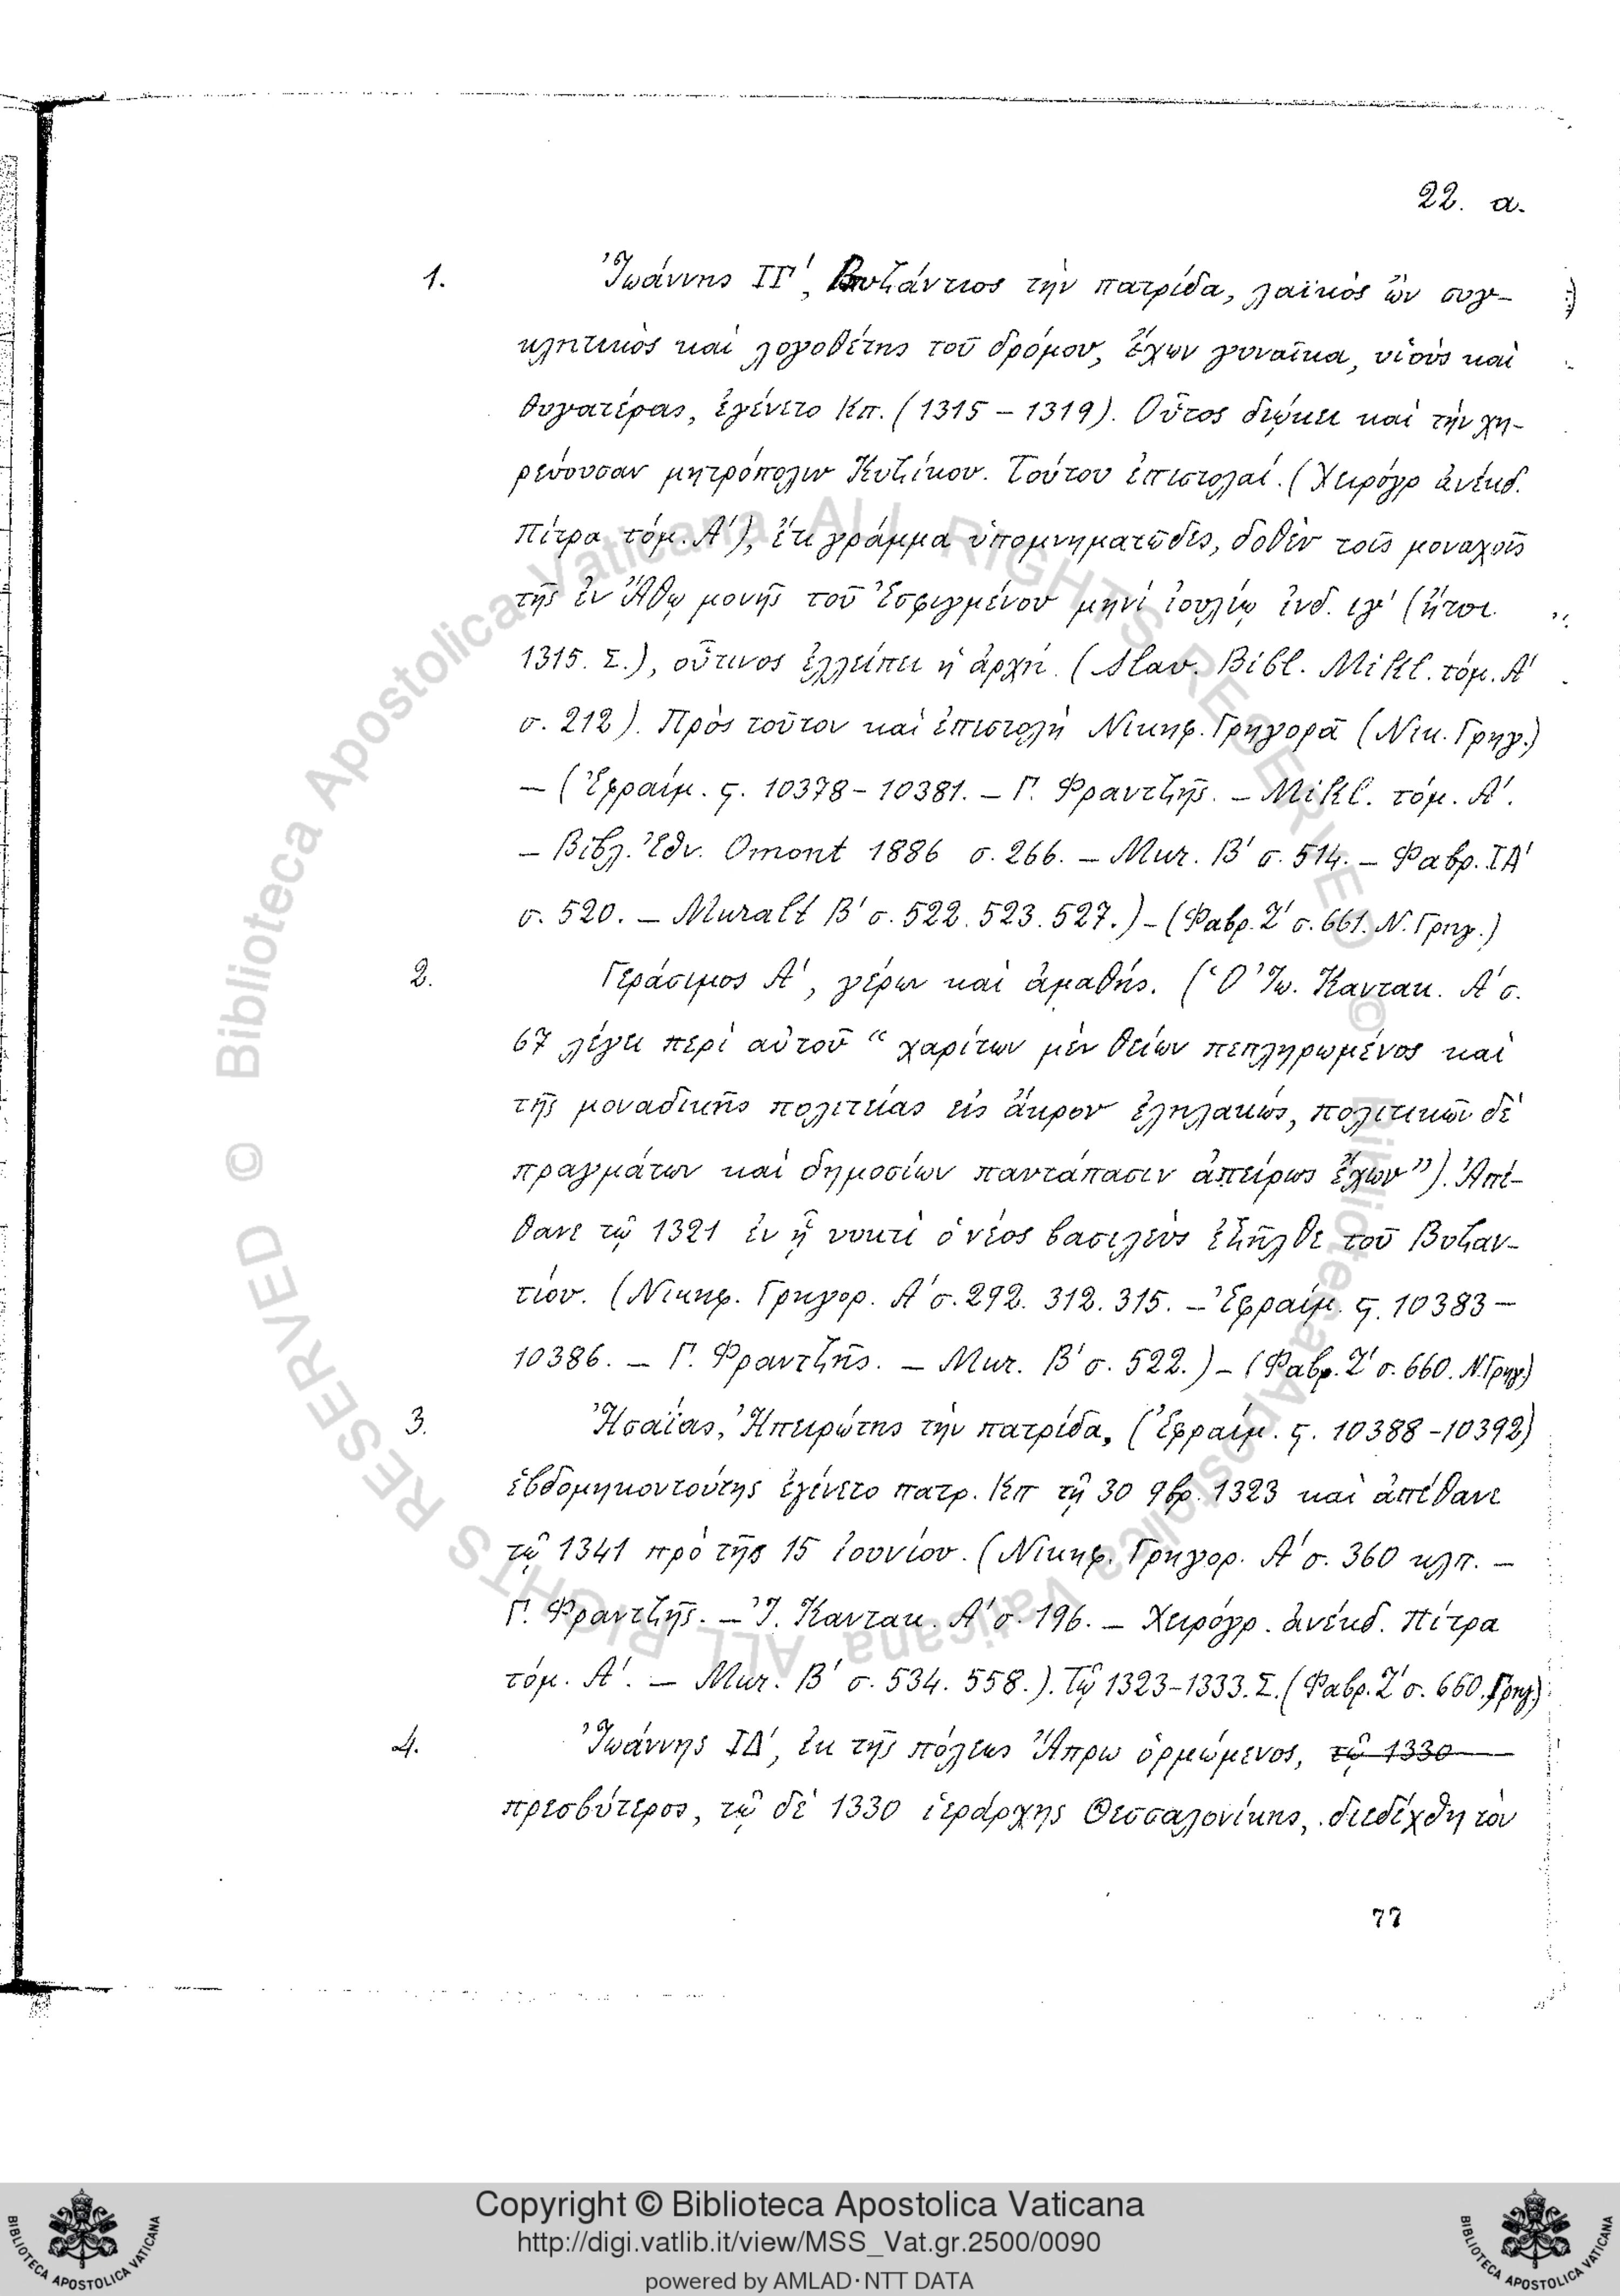 22. α.
1. Ἰωάννης ΙΓ′, Βυζάντιος τὴν πατρίδα, λαϊκὸς ὢν συγ-
κλητικὸς καὶ λογοθέτης τοῦ δρόμου, ἔχων γυναῖκα, υἱοὺς καὶ
θυγατέρας, ἐγένετο Κπ. (1315 – 1319). Οὗτος διῴκει καὶ τὴν χη-
ρεύουσαν μητρόπολιν Κυζίκου. Τούτου ἐπιστολαί. (Χειρόγρ ἀνέκδ.
Πίτρα τόμ. Α′), ἔτι γράμμα ὑπομνηματῶδες, δοθὲν τοῖς μοναχοῖς
τῆς ἐν Ἄθῳ μονῆς τοῦ Ἐσφιγμένου μηνὶ ἰουλίῳ ἰνδ. ιγ′ (ἤτοι
1315. Σ.), οὗτινος ἐλλείπει ἡ ἀρχή. (Slav. Bibl. Mikl. τόμ. Α′
σ. 212). Πρὸς τοῦτον καὶ ἐπιστολὴ Νικηφ. Γρηγορᾶ (Νικ. Γρηγ.)
– (Ἐφραίμ. ς. 10378 – 10381. – Γ. Φραντζῆς. – Mikl. τόμ. Α′.
– Βιβλ. Ἐθν. Omont 1886 σ. 266. – Mur. Β′ σ. 514. – Φαβρ. ΙΑ′
σ. 520. – Muralt Β′ σ. 522. 523. 527.) – (Φαβρ. Ζ′ σ. 661. Ν. Γρηγ.)
2. Γεράσιμος Α′, γέρων καὶ ἀμαθής. (Ὁ Ἰω. Καντακ. Α′ σ.
67 λέγει περὶ αὐτοῦ “ χαρίτων μὲν θείων πεπληρωμένος καὶ
τῆς μοναδικῆς πολιτείας εἰς ἄκρον ἐληλακώς, πολιτικῶν δὲ
πραγμάτων καὶ δημοσίων παντάπασιν ἀπείρως ἔχων”). Ἀπέ-
θανε τῷ 1321 ἐν ᾗ νυκτὶ ὁ νέος βασιλεὺς ἐξῆλθε τοῦ Βυζαν-
τίου. (Νικηφ. Γρηγορ. Α′ σ. 292. 312. 315. – Ἐφραίμ. ς. 10383 –
10386. – Γ. Φραντζῆς. – Mur. Β′ σ. 522.) – (Φαβρ. Ζ′ σ. 660. Ν. Γρηγ.)
3. Ἡσαΐας, Ἠπειρώτης τὴν πατρίδα, (Ἐφραίμ. ς. 10388 – 10392)
ἑβδομηκοντούτης ἐγένετο πατρ. Κπ τῇ 30 9βρ. 1323 καὶ ἀπέθανε
τῷ 1341 πρὸ τῆς 15 ἰουνίου. (Νικηφ. Γρηγορ. Α′ σ. 360 κλπ. –
Γ. Φραντζῆς. – Ἰ. Καντακ. Α′ σ. 196. – Χειρόγρ. ἀνέκδ. Πίτρα
τόμ. Α′. – Mur. Β′ σ. 534. 558.). Τῷ 1323–1333. Σ. (Φαβρ. Ζ′ σ. 660. Γρηγ.)
4. Ἰωάννης ΙΔ′, ἐκ τῆς πόλεως Ἄπρω ὁρμώμενος, τῷ 1330
πρεσβύτερος, τῷ δὲ 1330 ἱεράρχης Θεσσαλονίκης, διεδέχθη τὸν
77
© Biblioteca Apostolica Vaticana ALL RIGHTS RESERVED © Biblioteca Apostolica Vaticana ALL RIGHTS RESERVED
Copyright © Biblioteca Apostolica Vaticana
http://digi.vatlib.it/view/MSS_Vat.gr.2500/0090
powered by AMLAD·NTT DATA
BIBLIOTECA APOSTOLICA VATICANA
BIBLIOTECA APOSTOLICA VATICANA